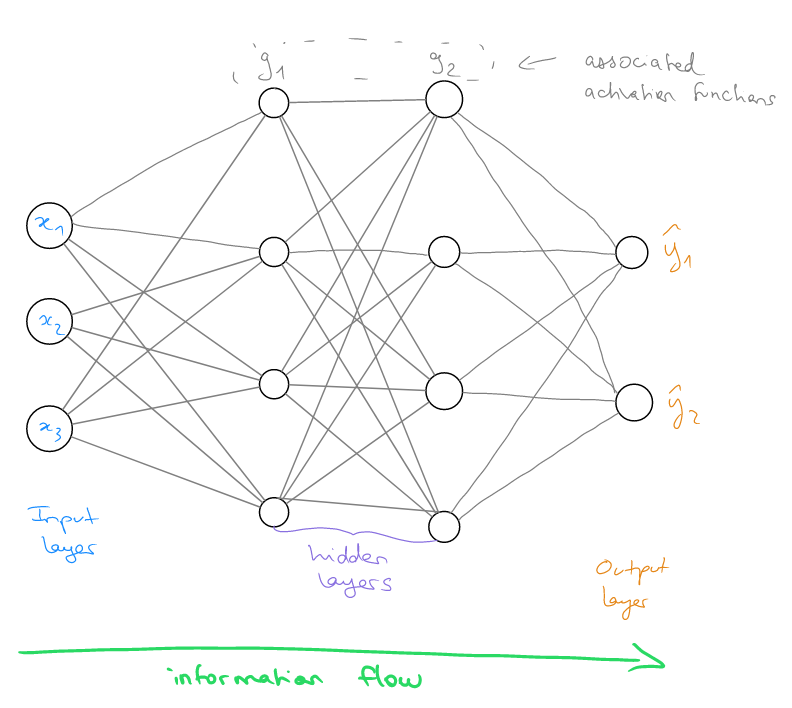 g1 g2
associated
activation functions
x1
ŷ1
x2
ŷ2
x3
Input
layer
hidden
layers
Output
layer
information flow